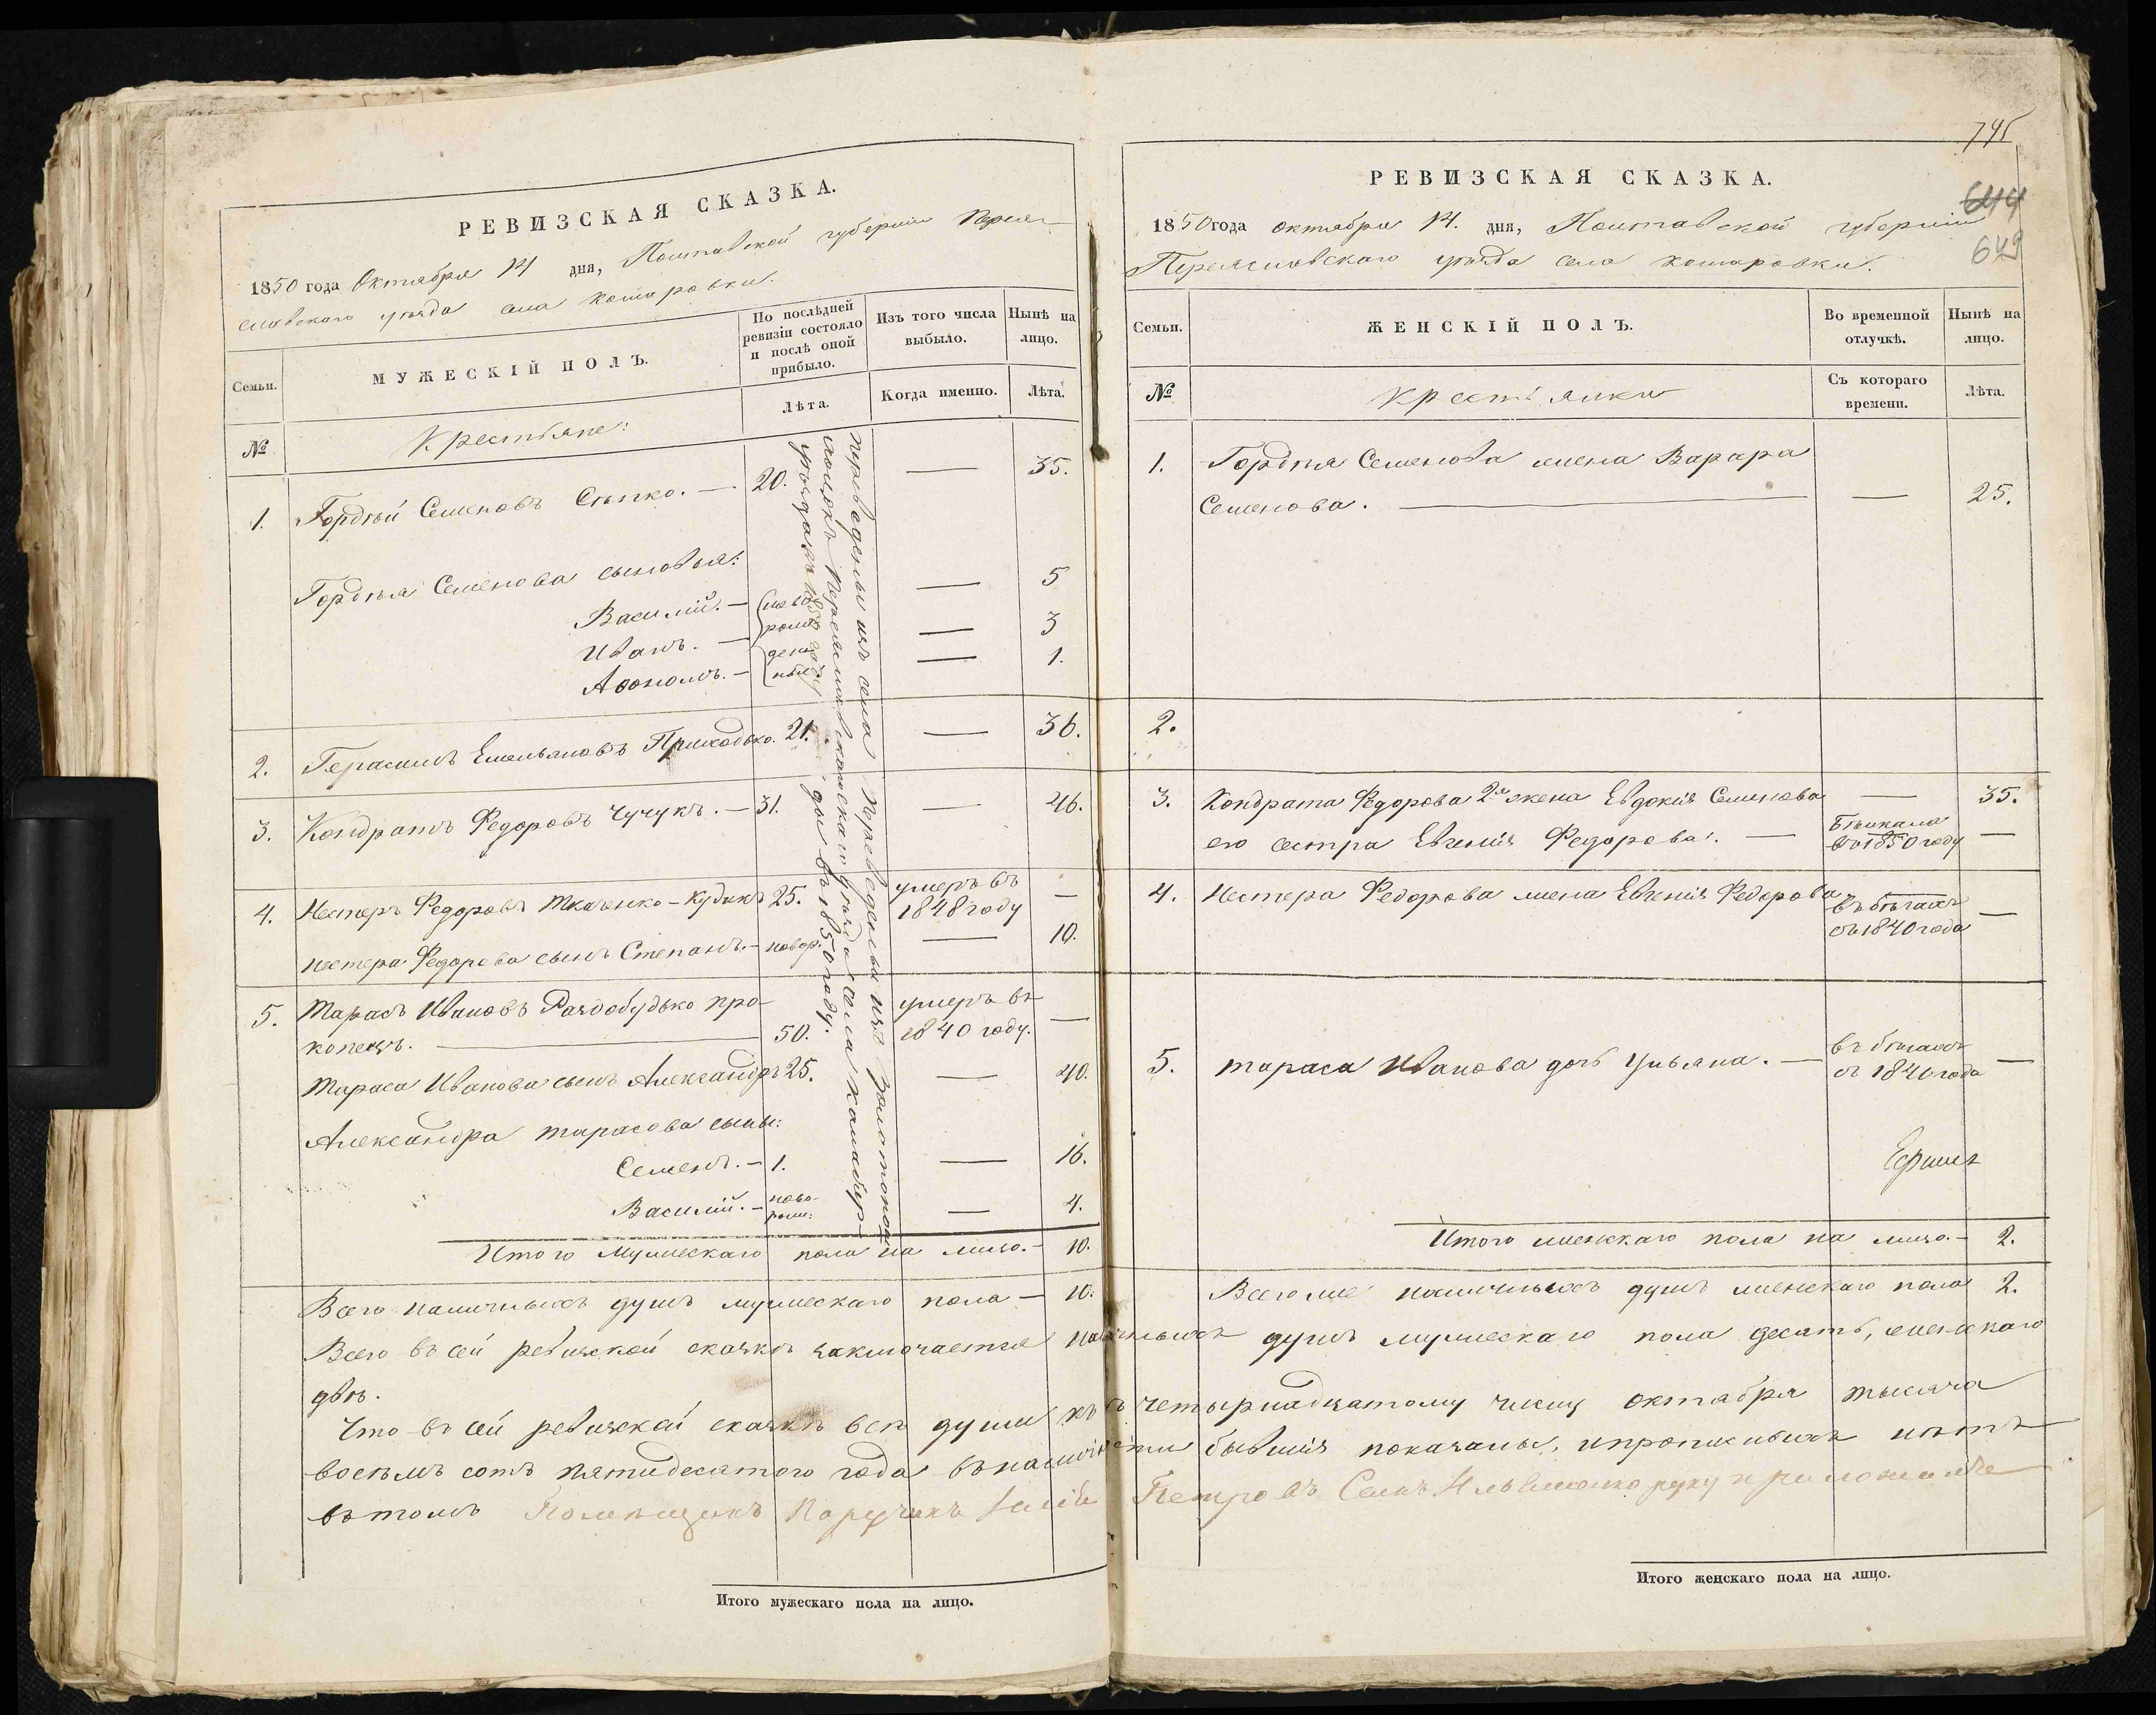 РЕВИЗСКАЯ СКАЗКА.
1850 года Октября 14 дня, Полтавской губернии Перея-
славскаго уѣзда села Комаровки.
Семьи.
МУЖЕСКІЙ ПОЛЪ.
По послѣдней ревизіи состояло и послѣ оной прибыло.
Изъ того числа выбыло.
Нынѣ на лицо.
Лѣта.
Когда именно.
Лѣта.
№
Крестьяне:
1. Гордѣй Семеновъ Сѣпко. — 20. — 35.
Гордѣя Семенова сыновья:
Василій. — ново — 5
Иванъ. — рож — 3
Афономъ. — ден ные — 1.
2. Герасимъ Емельяновъ Приходько. 21. — 36.
3. Кондратъ Федоровъ Чучукъ. — 31. — 46.
4. Нестеръ Федоровъ Ткаченко-Кудикъ 25. умеръ въ 1848 году —
нестера Федорова сынъ Степанъ. — новор. — 10.
5. Тарасъ Ивановъ Раздобудько про-
копецъ. — 50. умеръ въ 1840 году. —
Тараса Иванова сынъ Александръ 25. — 40.
Александра тарасова сыны:
Семенъ. — 1. — 16.
Василій. — ново-рож: — 4.
переведены изъ села
Переведены изъ Золотонош
Переяславскаго уѣзда села
въ 1850 году.
Итого Мужескаго пола на лицо. — 10.
Всего наличныхъ душъ мужескаго пола — 10.
Всего въ сей ревизской сказкѣ заключается наличныхъ душъ мужескаго пола десять, женскаго
двѣ.
Что въ сей ревизской сказкѣ всѣ души къ четырнадцатому числу октября тысяча
восемъ сотъ пятидесятого года въ наличности бывшія показаны, и прописныхъ нѣтъ
въ томъ Помѣщикъ Поручикъ Петровъ Сынъ руку приложилъ
Итого мужескаго пола на лицо.
745
644
649
РЕВИЗСКАЯ СКАЗКА.
1850 года октября 14. дня, Полтавской губерніи
Переяславскаго уѣзда села комаровки.
Семьи.
ЖЕНСКІЙ ПОЛЪ.
Во временной отлучкѣ.
Нынѣ на лицо.
№
крестьянки
Съ котораго времени.
Лѣта.
1. Гордѣя Семенова жена Варара
Семенова. — — 25.
2.
3. Кондрата Федорова 2я жена Евдокія Семенова — 35.
его сестра Евгенія Федорова. — Бѣжала въ 1850 году —
4. Нестера Федорова жена Евгенія Федорова въ бѣгахъ съ 1840 года —
5. тараса Иванова дочь Ульяна. — въ бѣгахъ съ 1840 года —
Итого женскаго пола на лицо. — 2.
Всего же наличныхъ душъ женскаго пола 2.
Итого женскаго пола на лицо.